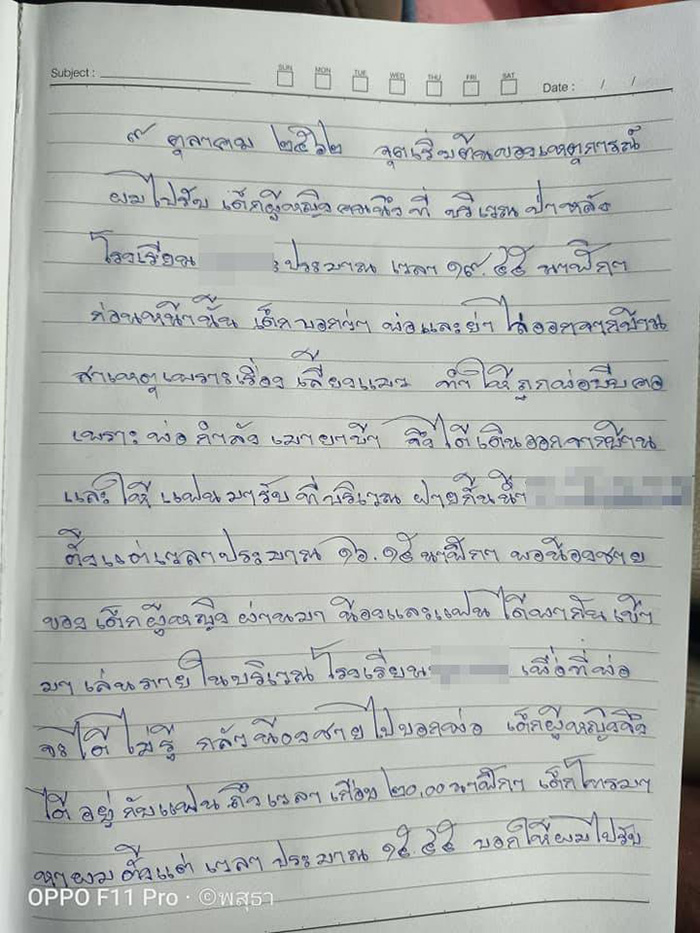 Subject :
SUN MON TUE WED THU FRI SAT
Date : / /
๙ ตุลาคม ๒๕๖๒ จุดเริ่มต้นของเหตุการณ์
ผมไปรับ เด็กผู้หญิงคนนึงที่ บริเวณ ป่าหลัง
โรงเรียน ประมาณ เวลา ๑๙.๕๕ นาฬิกา
ก่อนหน้านั้น เด็กบอกว่า พ่อและย่า ไล่ออกจากบ้าน
สาเหตุเพราะเรื่อง เลี้ยงแมว ทำให้ถูกพ่อบีบคอ
เพราะ พ่อ กำลัง เมายาบ้า จึงได้เดินออกจากบ้าน
และให้ แฟนมารับ ที่บริเวณ ฝายกั้นน้ำ
ตั้งแต่เวลาประมาณ ๑๖.๑๕ นาฬิกา พอน้องชาย
ของ เด็กผู้หญิง ผ่านมา น้องและแฟน ได้พากัน เข้า
มา เล่นทราย ในบริเวณ โรงเรียน เพื่อที่พ่อ
จะได้ ไม่รู้ กลัวน้องชายไปบอกพ่อ เด็กผู้หญิงจึง
ได้ อยู่ กับแฟน ถึงเวลา เกือบ ๒๐.๐๐ นาฬิกา เด็กโทรมา
หาผม ตั้งแต่ เวลา ประมาณ ๑๕.๕๕ บอกให้ผมไปรับ
OPPO F11 Pro · ©พสุธา